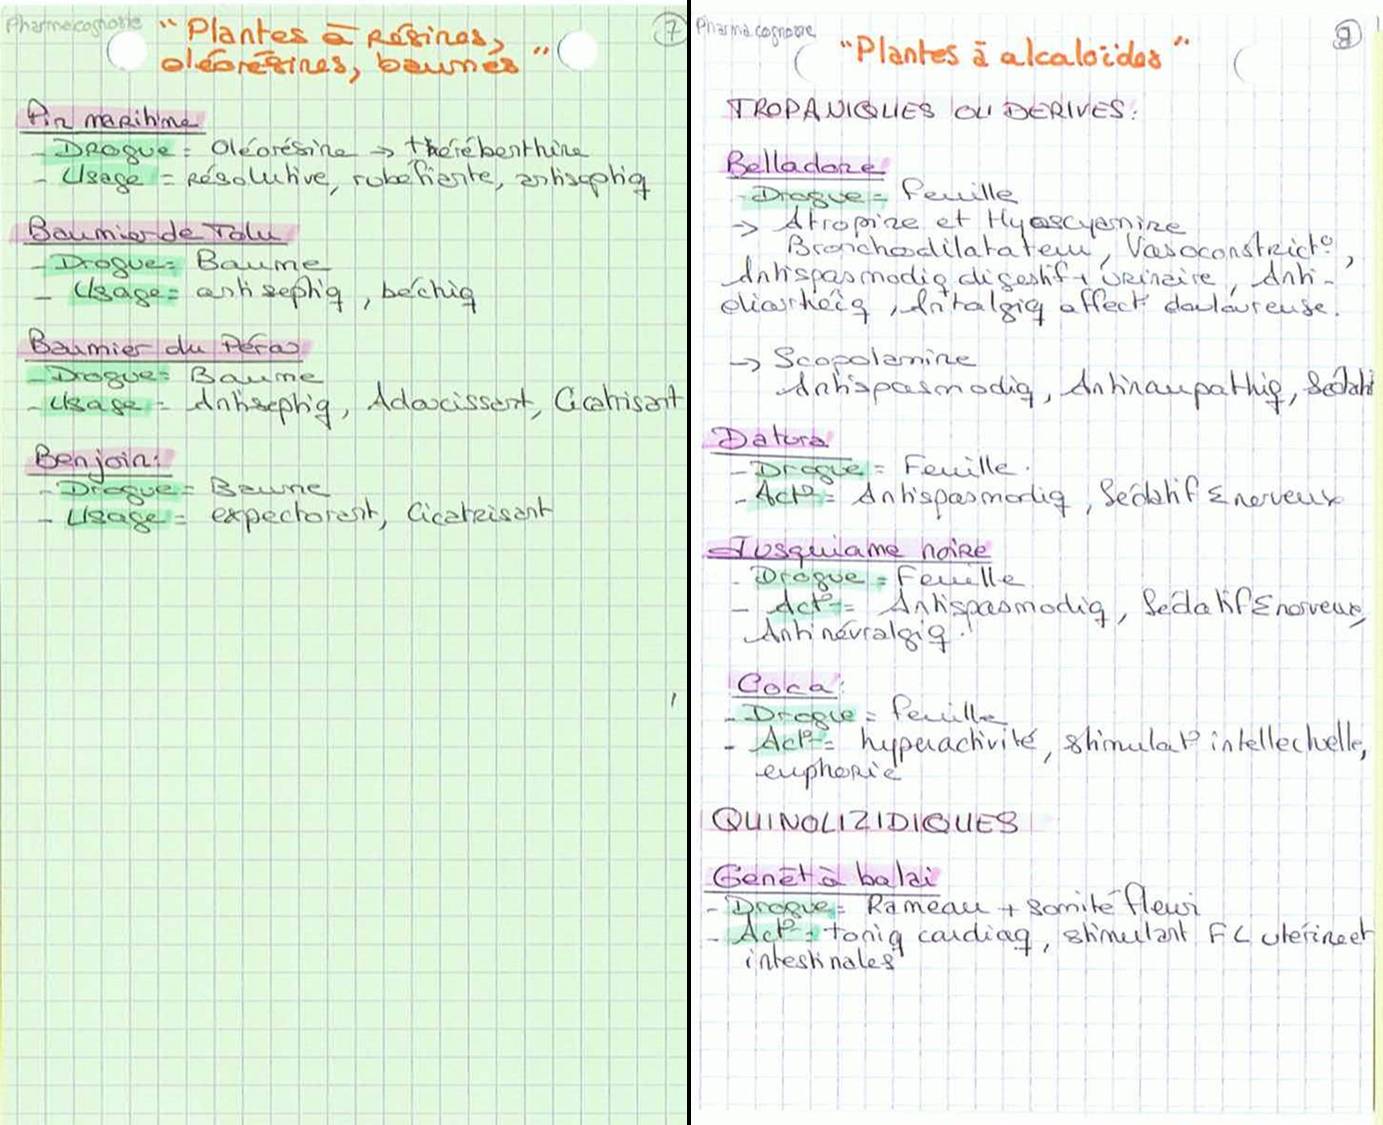 Pharmacognosie
7
"Plantes à Résines,
oléorésines, baumes"
Pin maritime
- Drogue = Oléorésine → thérébenthine
- Usage = Résolutive, rubéfiante, antiseptiq
Baumier de Tolu
- Drogue = Baume
- Usage = antiseptiq, béchiq
Baumier du Pérou
- Drogue = Baume
- Usage = Antiseptiq, Adoucissant, Cicatrisant
Benjoin:
- Drogue = Baume
- Usage = expectorant, Cicatrisant
Pharmacognosie
"Plantes à alcaloïdes"
TROPANIQUES OU DERIVES:
Belladone
- Drogue = feuille
→ Atropine et Hyoscyamine
Bronchodilatateur, Vasoconstrict°,
Antispasmodiq digestif + Urinaire, Anti-
diarrhéiq, Antalgiq affect° douloureuse.
→ Scopolamine
Antispasmodiq, Antinaupathiq, Sédatif
Datura
- Drogue = Feuille.
- Act° = Antispasmodiq, Sédatif Σ nerveux
Jusquiame noire
- Drogue = Feuille
- Act° = Antispasmodiq, Sédatif Σ nerveux,
Antinévralgiq.
Coca:
- Drogue = feuille
- Act° = hyperactivité, stimulat° intellectuelle,
euphorie
QUINOLIZIDIQUES
Genêt à balai
- Drogue = Rameau + Somité fleuri
- Act° = toniq cardiaq, stimulant FL utérine et
intestinales